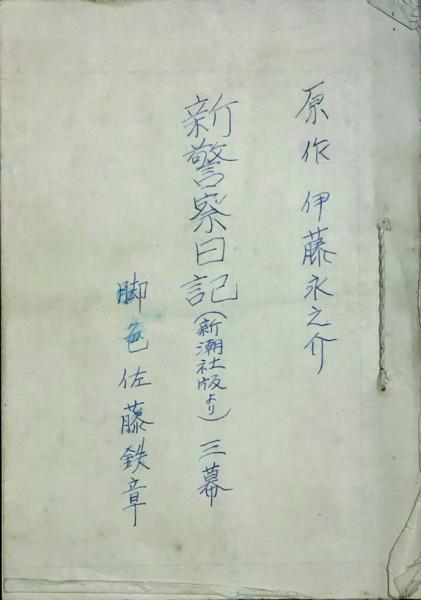 原作 伊藤永之介
新警察日記(新潮社版より) 三幕
脚色 佐藤鉄章